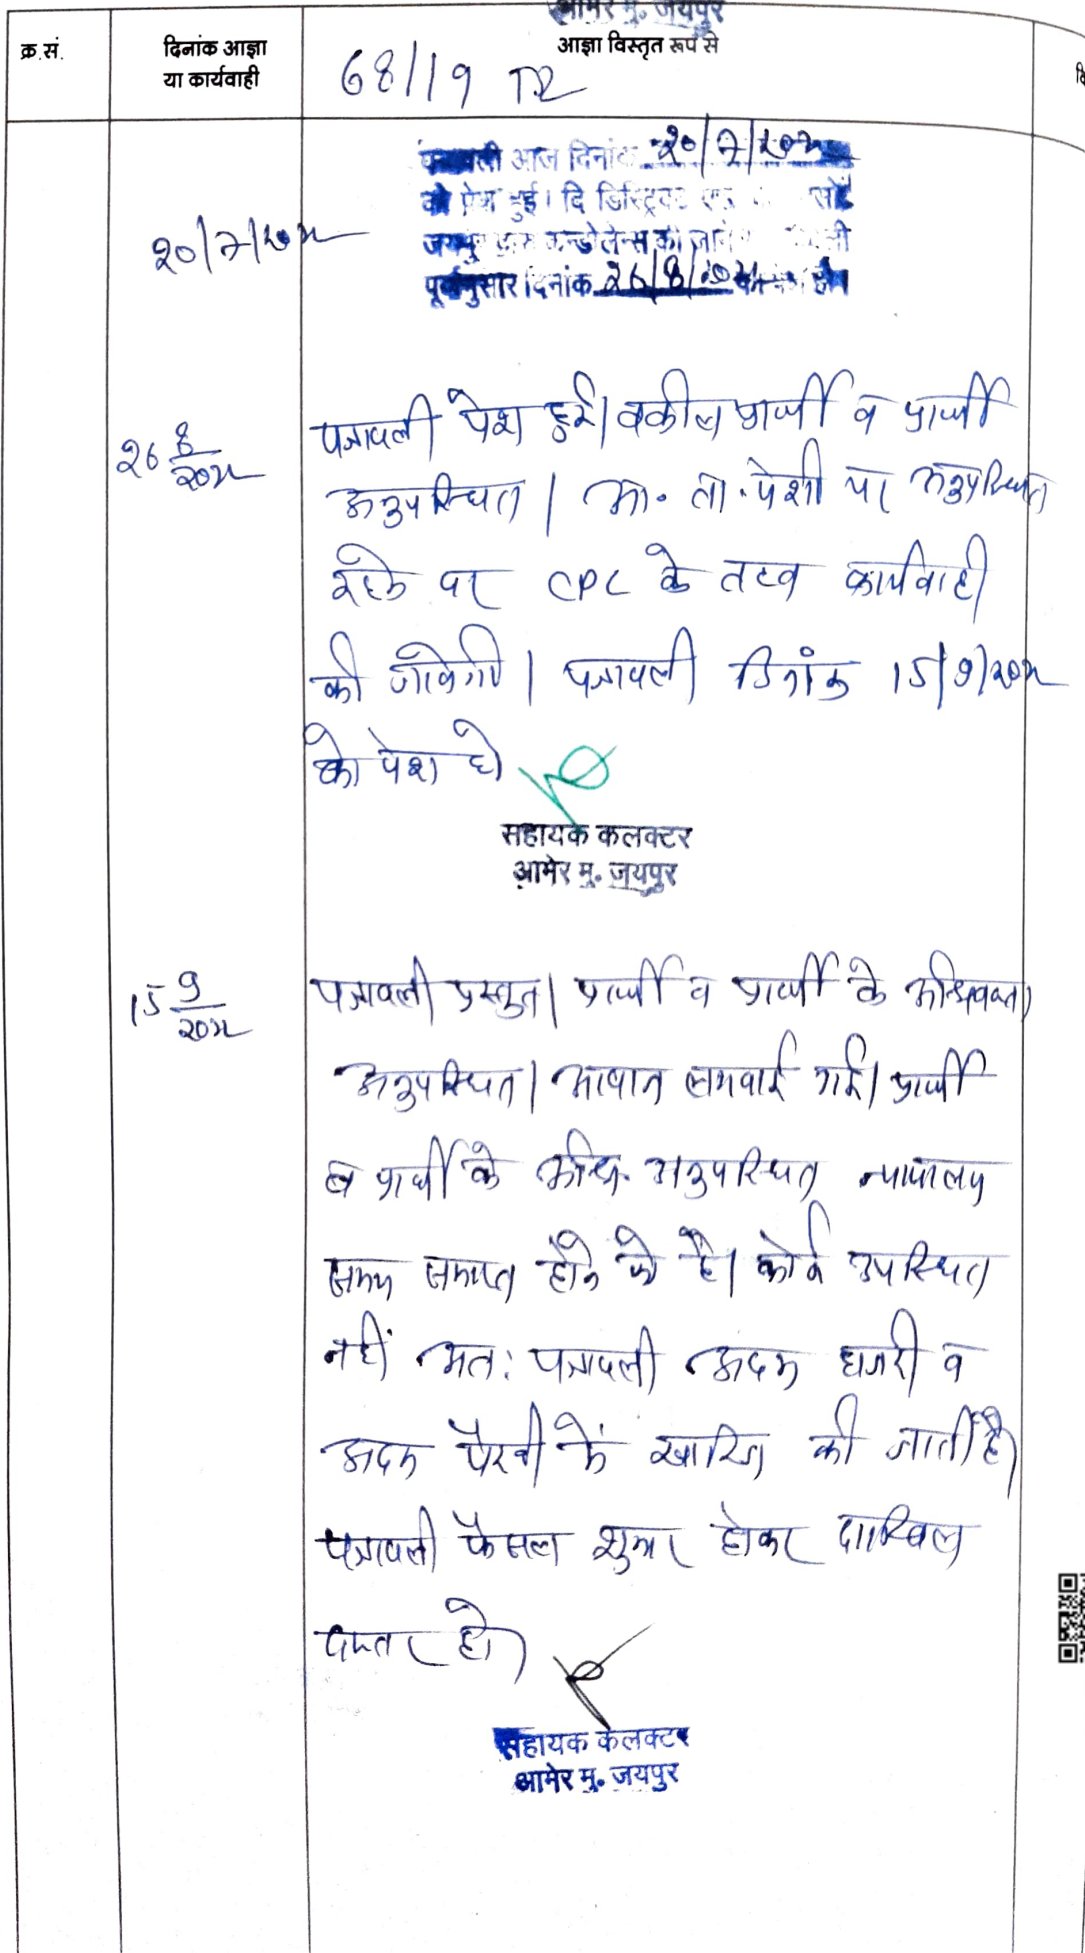 आमेर मु. जयपुर
क्र.सं.
दिनांक आज्ञा
या कार्यवाही
आज्ञा विस्तृत रूप से
68/19 TR
पत्रावली आज दिनांक 20/7/2022
को पेश हुई। दि डिस्ट्रिक्ट
जयपुर कन्डोलेन्स की
पूर्वानुसार दिनांक 26/8/
20/7/2022
26 8/2022
पत्रावली पेश हुई। वकील प्रार्थी व प्रार्थी
अनुपस्थित। आ. ता. पेशी पर अनुपस्थित
रहने पर CPC के तहत कार्यवाही
की जावेगी। पत्रावली दिनांक 15/9/2022
को पेश हो
सहायक कलक्टर
आमेर मु. जयपुर
15 9/2022
पत्रावली प्रस्तुत। प्रार्थी व प्रार्थी के अधिवक्ता
अनुपस्थित। आवाज लगवाई गई। प्रार्थी
व प्रार्थी के अधि. अनुपस्थित न्यायालय
समय समाप्त होने को है। कोई उपस्थित
नहीं अत: पत्रावली अदम हाजरी व
अदम पैरवी में खारिज की जाती है।
पत्रावली फैसल शुमार होकर दाखिल
दफ्तर हो।
सहायक कलक्टर
आमेर मु. जयपुर